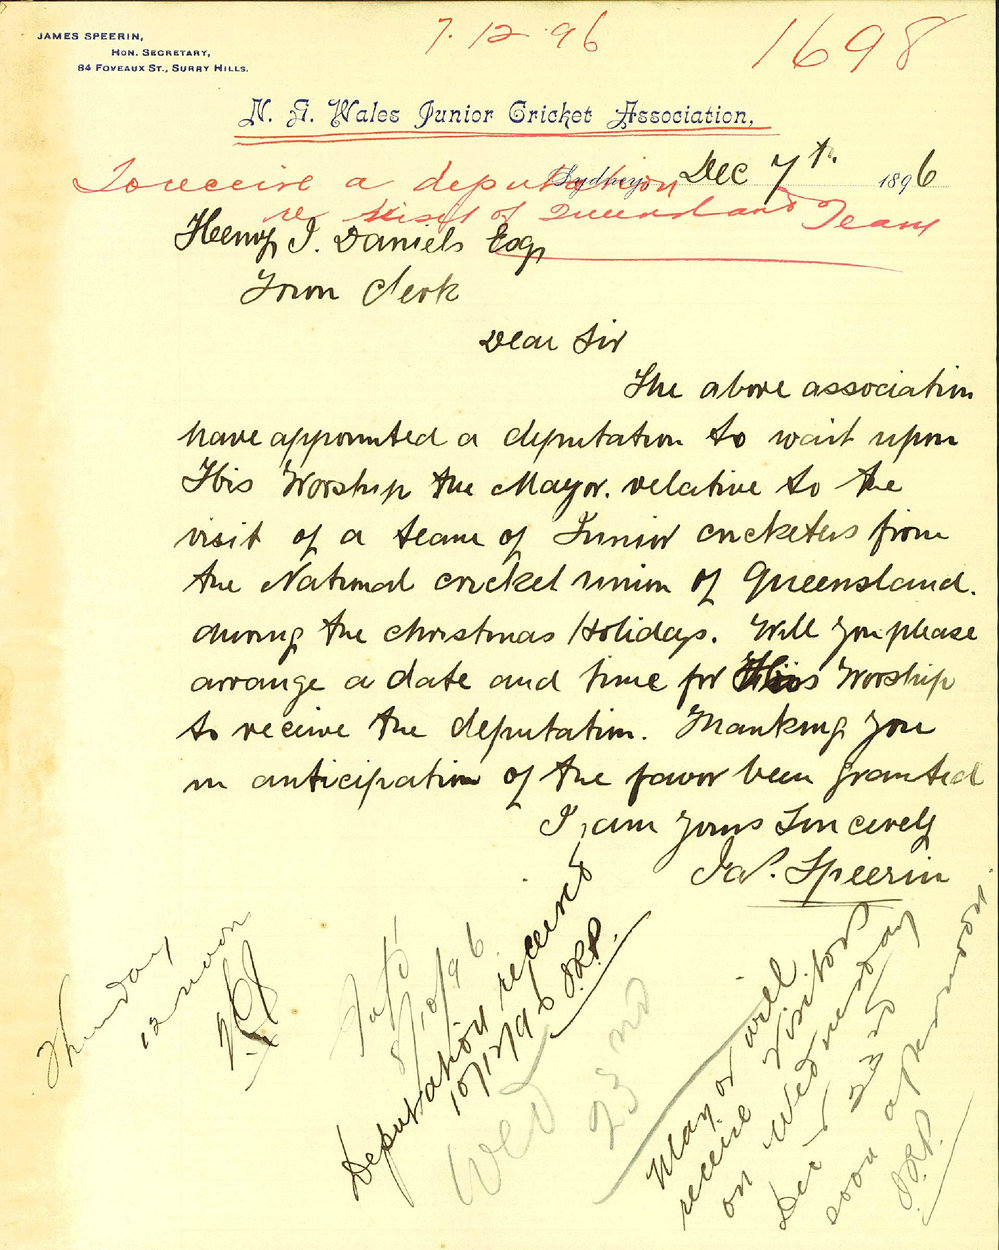 JAMES SPEERIN,
HON. SECRETARY,
84 FOVEAUX ST., SURRY HILLS.
7.12.96
1698
N. S. Wales Junior Cricket Association,
Sydney, Dec 7th 1896
To receive a deputation
re visit of Queensland Team
Henry J. Daniels Esq
Town Clerk
Dear Sir
The above association
have appointed a deputation to wait upon
His Worship the Mayor. relative to the
visit of a team of Junior cricketers from
the National cricket union of Queensland.
during the Christmas Holidays. Will you please
arrange a date and time for His Worship
to receive the deputation. Thanking you
in anticipation of the favor been granted
I am yours Sincerely
Jas. Speerin
Thursday
12 noon
8/10/96
Deputation received
10/12/96 J.R.P.
Wed
23rd
Mayor will
receive Visitors
on Wednesday
Dec 23rd
soon afternoon.
J.R.P.